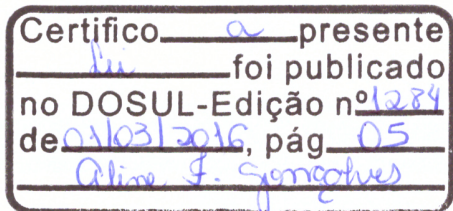 Certifico a presente
Lei foi publicado
no DOSUL-Edição nº 1284
de 01/03/2016, pág 05
Aline F. Gonçalves